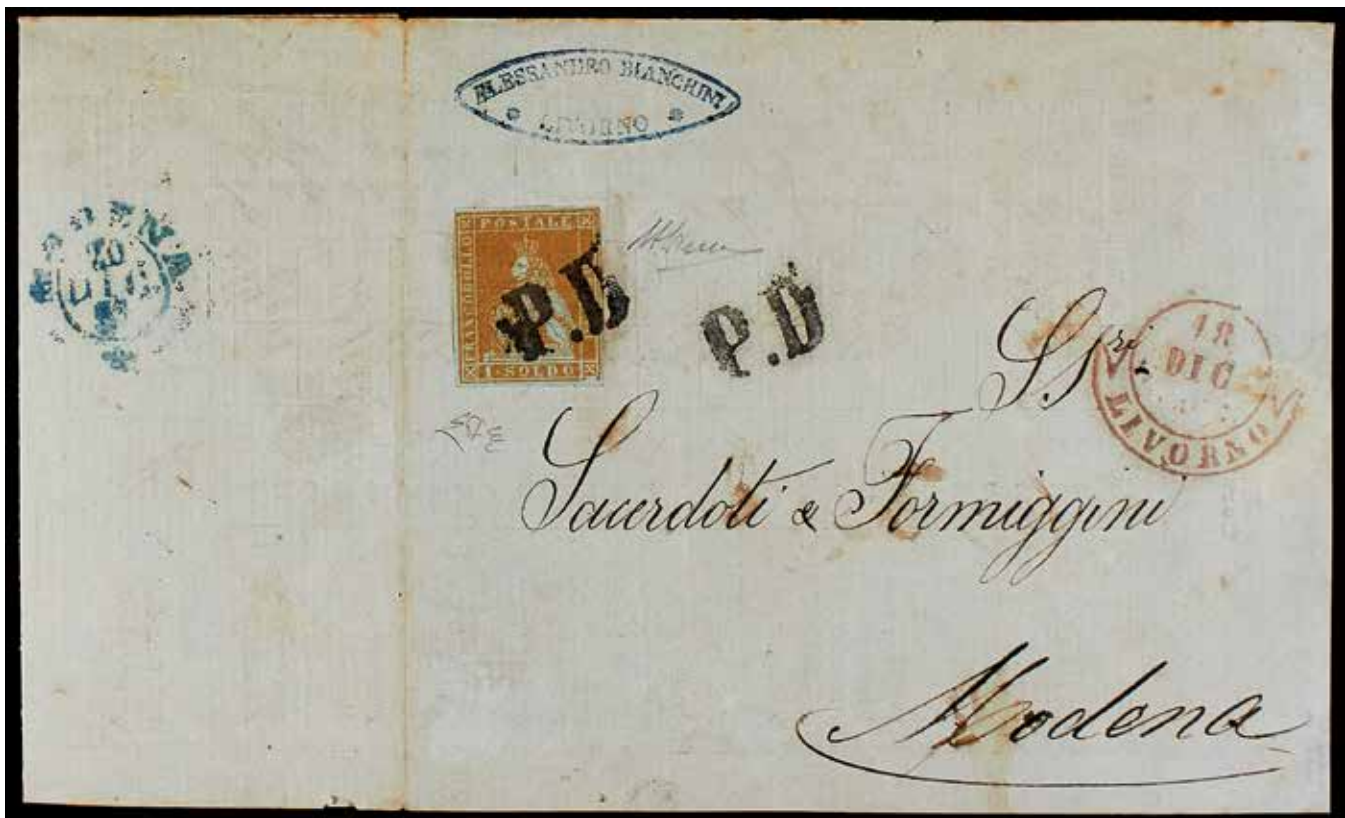 ALESSANDRO BIANCHINI
LIVORNO
MODENA
20
DIC
FRANCOBOLLO
POSTALE
1 SOLDO
P.D
P.D
18
DIC
LIVORNO
SSri
Sacerdoti e Formiggini
Modena